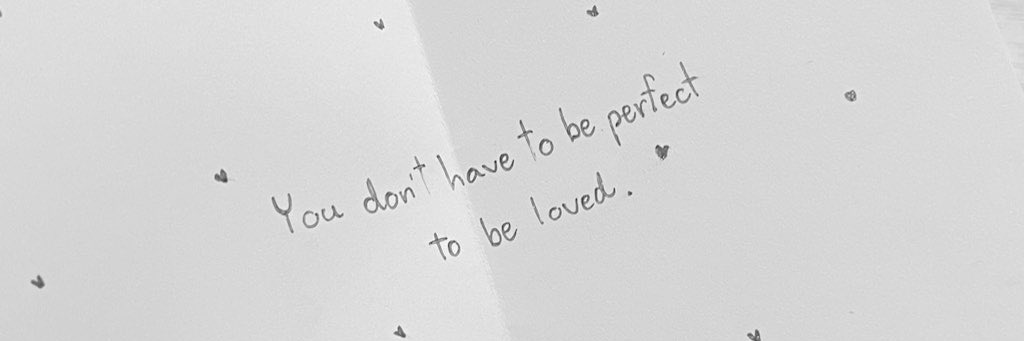 You don't have to be perfect
to be loved.